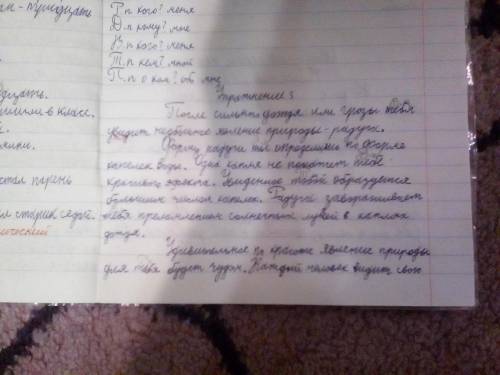 Р.п кого? меня
Д.п кому? мне
В.п кого? меня
Т.п кем? мной
П.п о ком? обо мне
дцать.
шими в класс.
стал парень
старик седой.
Упражнение 3
После сильного дождя или грозы тебя
увидит необычное явление природы - радуга.
Форму радуги ты определишь по форме
капелек воды. Одна капля не покажет тебе
красивого эффекта. Увиденное тобой образуется
большим числом капелек. Радуга завораживает
тебя преломлением солнечных лучей в каплях
дождя.
Удивительное по красоте явление природы
для тебя будет чудом. Каждый человек видит свою